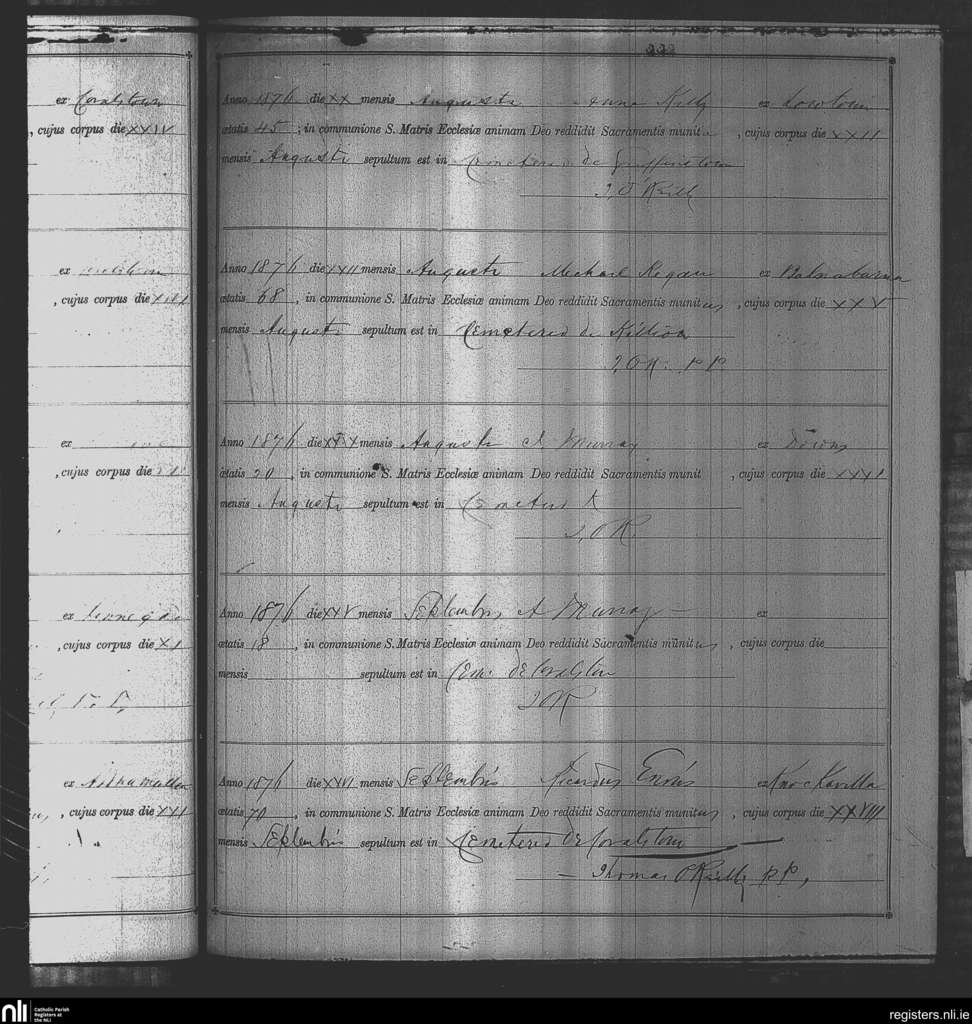 ex Coralstown
, cujus corpus die XXIV
ex
, cujus corpus die XVIII
ex
, cujus corpus die
ex
, cujus corpus die XI
ex
, cujus corpus die XXI
222
Anno 1876 die XX mensis Augusti Anna Kelly ex Lowtown
ætatis 45 ; in communione S. Matris Ecclesiæ animam Deo reddidit Sacramentis munita , cujus corpus die XXII
mensis Augusti sepultum est in de
T, O'Reilly
Anno 1876 die XXII mensis Augusti Michael Regan ex
ætatis 68 , in communione S. Matris Ecclesiæ animam Deo reddidit Sacramentis munitus , cujus corpus die XXV
mensis Augusti sepultum est in Cemeterio de
T, OR. P P
Anno 1876 die XXX mensis Augusti A Murray ex
ætatis 20 , in communione S. Matris Ecclesiæ animam Deo reddidit Sacramentis munit , cujus corpus die XXXI
mensis Augusti sepultum est in K
T, OR.
Anno 1876 die XXV mensis Septembris A Murray – ex
ætatis 18 , in communione S. Matris Ecclesiæ animam Deo reddidit Sacramentis munitus , cujus corpus die
mensis sepultum est in Cem. de
T OR
Anno 1876 die XXVI mensis Septembris Ricardus Ennis ex Knockavilla
ætatis 70 , in communione S. Matris Ecclesiæ animam Deo reddidit Sacramentis munitus , cujus corpus die XXVIII
mensis Septembris sepultum est in Cemeterio de Coralstown
– Thomas O'Reilly P P,
nli Catholic Parish
Registers at
the NLI
registers.nli.ie